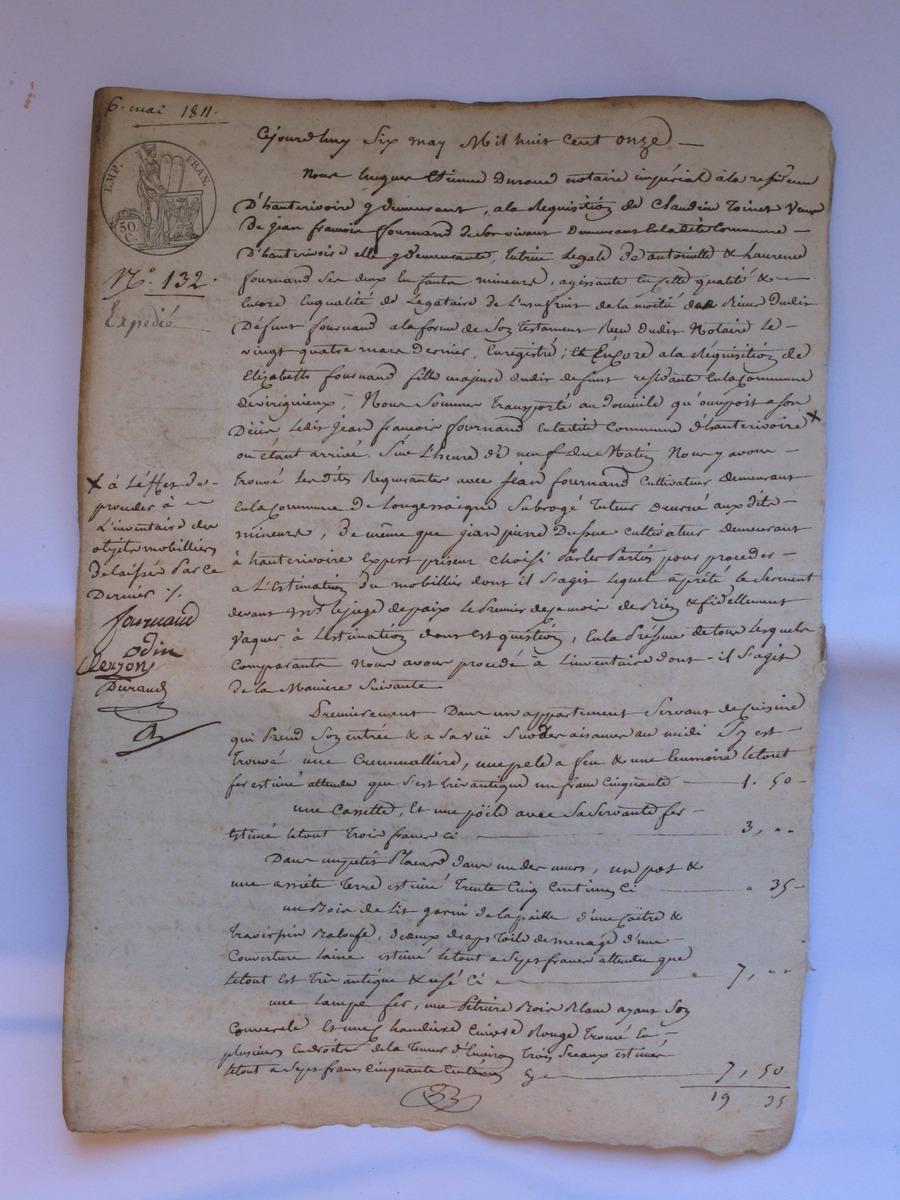 6. mai 1811.
EMP. FRAN.
50 C.
N.º 132.
Expedié
Cejourdhuy Six may Mil huit Cent onze —
Nous Etienne Durand notaire impérial à la residence
D'hauterivoire y demeurant, a la Requisition de Claudine Toinet Veuve
De jean francois fournand De Son vivant demeurant En la dite Commune —
D'hauterivoire elle y demeurante, tutrice Legale de antoinette & Laurence
fournand Ses deux Enfants mineures, agissante En cette qualité & —
Encore En qualité de Légataire de L'usufruit de la moitié des Biens dudit
Défunt fournand a la forme de Son Testament Reçu dudit Notaire Le —
vingt quatre mars dernier, Enregistré; Et Encore a la Réquisition de
Elizabeth fournand fille majeure dudit defunt residante En la Commune
de virignieux, Nous Sommes transporté au domicile qu'occupoit a Son
Décès Ledit Jean francois fournand En la dite Commune D'hauterivoire X
ou étant arrivé Sur L'heure de neuf du Matin Nous y avons —
trouvé Les dites Requerantes avec Jean fournand Cultivateur demeurant
En la Commune de Longessaigne Subrogé tuteur Decerné aux dites
mineures, De même que jean pierre cultivateur demeurant
à hauterivoire Expert priseur Choisi Par les Parties pour proceder —
a L'Estimation du mobillier dont il S'agit Lequel a prêté le Serment
devant Mr. le juge de paix Le Premier de ce mois de Bien & fidellement
Vaquer à L'estimation dont est question, En la Présence de tous Lesquels
Comparants Nous avons procédé à L'inventaire dont-il S'agit
de la Maniere Suivante
X à L'éffet de —
proceder à —
L'inventaire des
objets mobilliers
delaissés Par Ce
Dernier /.
fournand
odin
Clerzon
Durand
Premierement Dans un appartement Servant de Cuisine
qui Prend Son Entrée & a Sa vüe Sur Ses aisances au midi S'y est —
Trouvé une Cremalliere, une pele a feu & une le tout
fer estimé attendu que S'est trés antique un franc Cinquante — 1. 50 —
une Cassette, Et une pöële avec Sa Servante fer —
Estimé le tout trois francs ci — 3, " "
Dans un petit Placard dans un des murs, un pot &
une assiéte terre estimé Trente Cinq Centimes Ci — " 35 —
un Bois de Lit garni de la paille d'une Coitre &
Traverssin Baloufe, deux draps Toile de menage d'une —
Couverture Laine estimé le tout a Sept francs attendu que
le tout est Trés antique & usé Ci — 7, " "
une Lampe fer, une Pétriere Bois Blanc ayant Son
Couvercle Et une Chaudiere Cuivre Rouge Trouée En —
plusieurs Endroits de la teneur d'Environ Trois Sceaux estimés
le tout a Sept francs Cinquante Centimes Cy — 7, 50
19 35